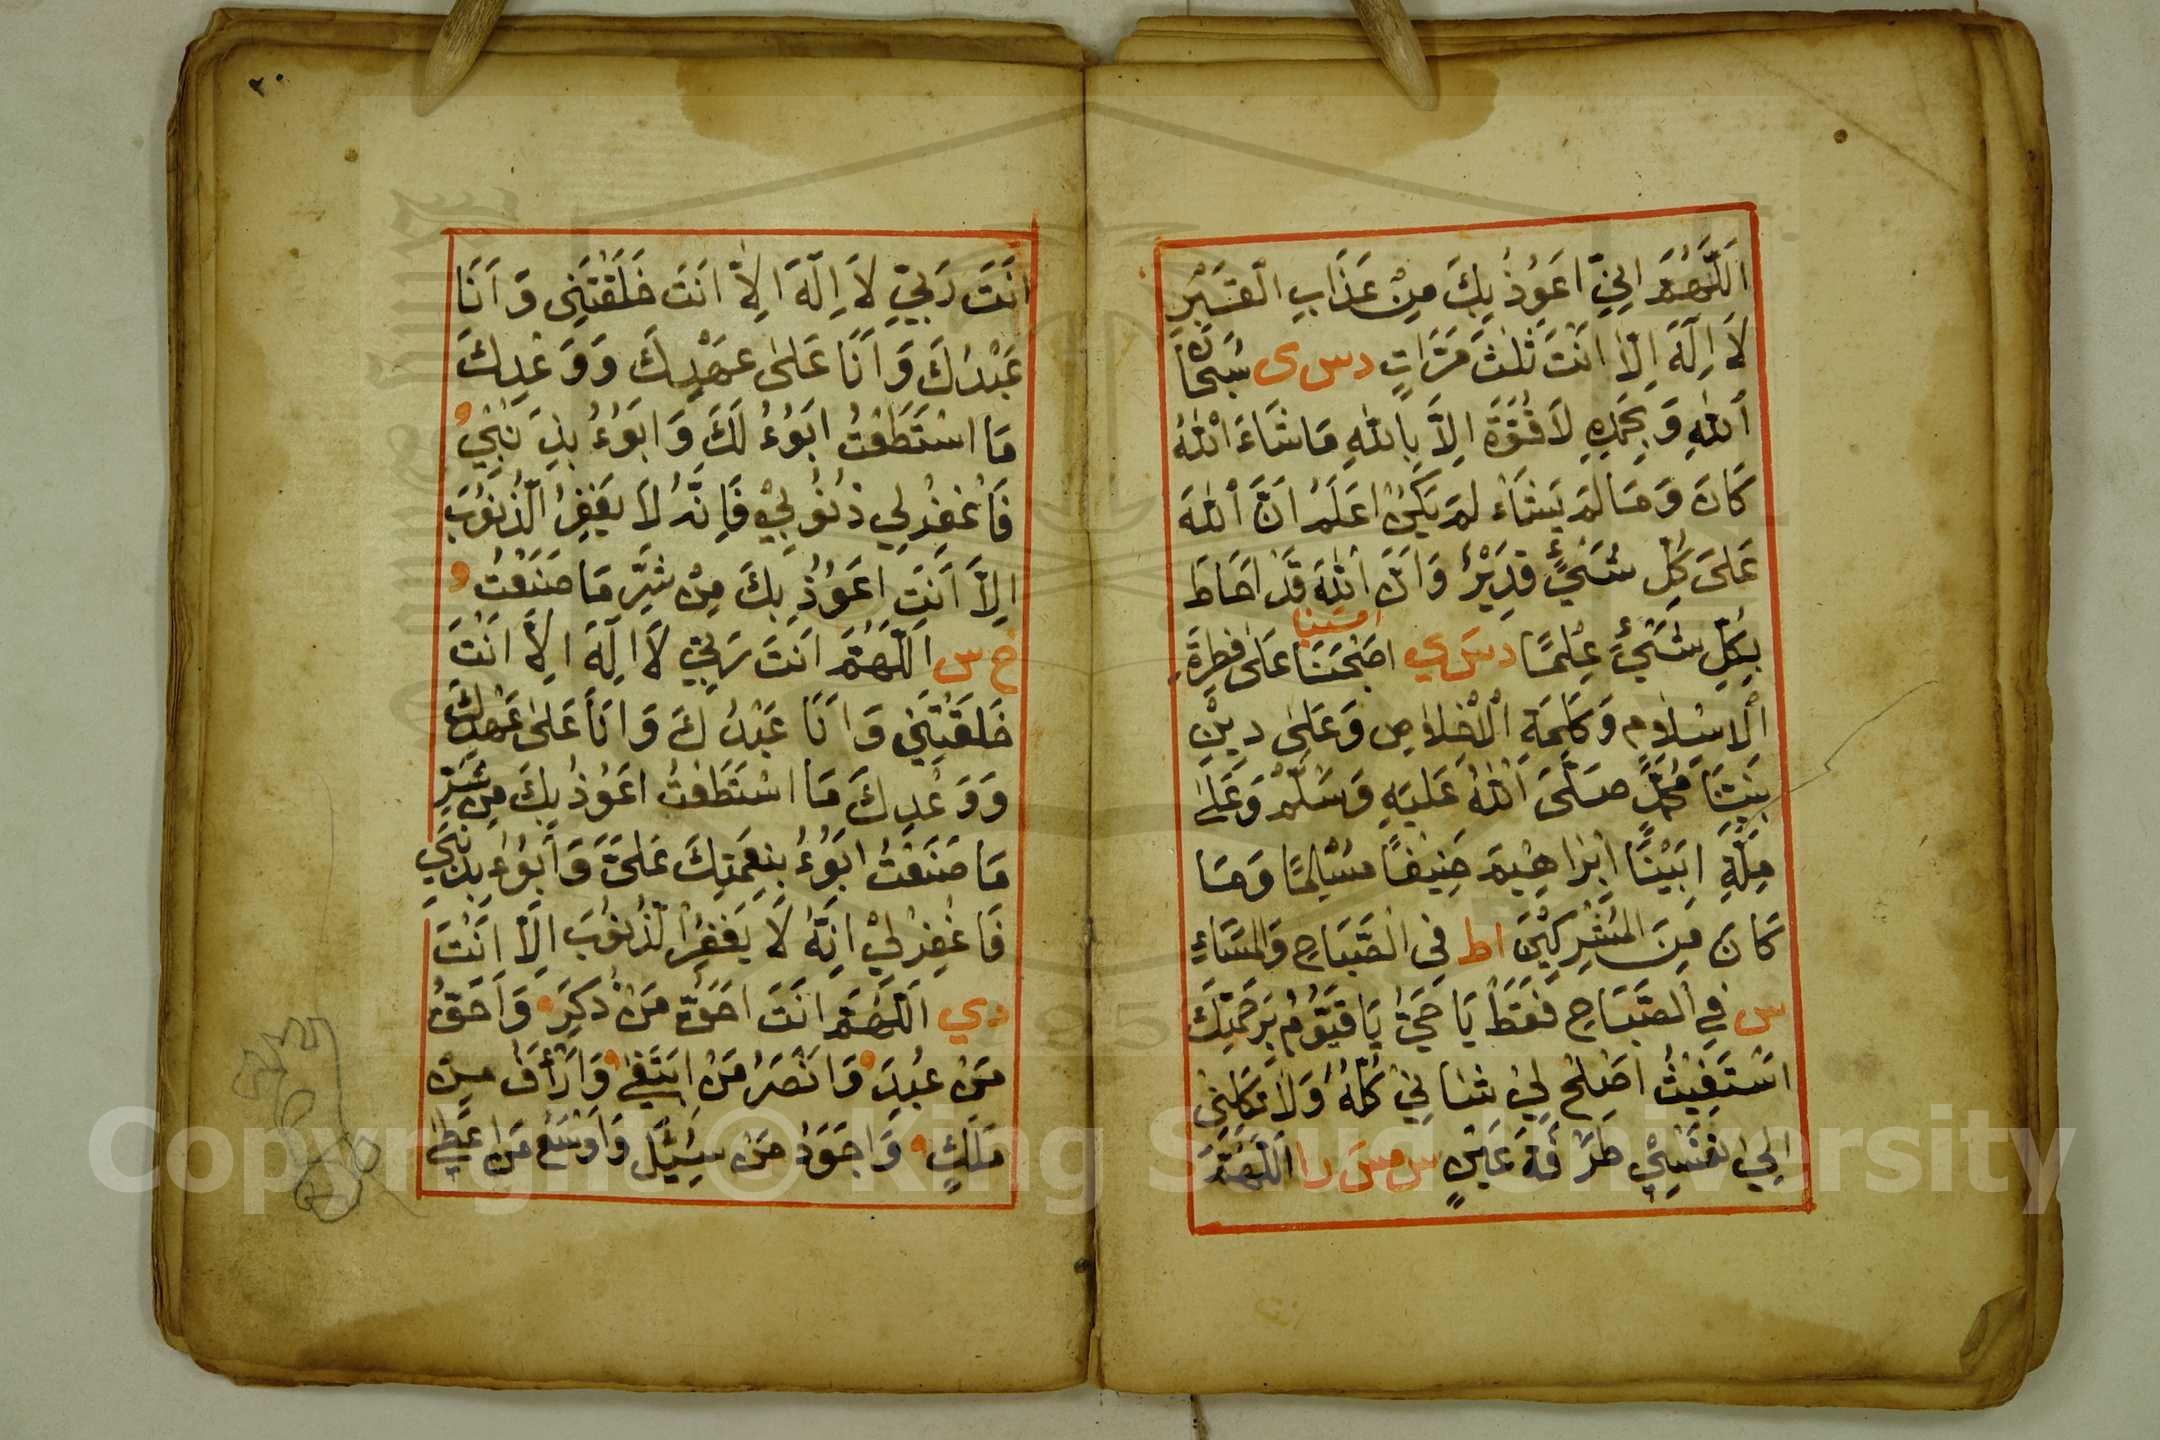 اَللّٰهُمَّ اِنِّي اَعُوْذُ بِكَ مِنْ عَذَابِ الْقَبْرِ
لَا اِلٰهَ اِلَّا اَنْتَ ثَلٰثَ مَرَّاتٍ د س ى سُبْحَانَ
اَللّٰهِ وَبِحَمْدِهِ لَا قُوَّةَ اِلَّا بِاللّٰهِ مَاشَاءَ اللّٰهُ
كَانَ وَمَا لَمْ يَشَاءْ لَمْ يَكُنْ اَعْلَمُ اَنَّ اللّٰهَ
عَلَى كُلِّ شَيْءٍ قَدِيْرٌ وَاَنَّ اللّٰهَ قَدْ اَحَاطَ
امسينا
بِكُلِّ شَيْءٍ عِلْمًا د س ي اَصْبَحْنَا عَلٰى فِطْرَةِ
اَلْاِسْلَامِ وَكَلِمَةِ الْاِخْلَاصِ وَعَلٰى دِيْنِ
نَبِيِّنَا مُحَمَّدٍ صَلَّى اللّٰهُ عَلَيْهِ وَسَلَّمَ وَعَلٰى
مِلَّةِ اَبِيْنَا اِبْرَاهِيْمَ حَنِيْفًا مُسْلِمًا وَمَا
كَانَ مِنَ الْمُشْرِكِيْنَ ا ط فِي الصَّبَاحِ وَالْمَسَاءِ
س فِي الصَّبَاحِ فَقَطْ يَا حَيُّ يَا قَيُّوْمُ بِرَحْمَتِكَ
اَسْتَغِيْثُ اَصْلِحْ لِيْ شَانِيْ كُلَّهُ وَلَا تَكِلْنِيْ
اِلٰى نَفْسِيْ طَرْفَةَ عَيْنٍ س مس را اَللّٰهُمَّ
٢٠
اَنْتَ رَبِّيْ لَا اِلٰهَ اِلَّا اَنْتَ خَلَقْتَنِيْ وَاَنَا
عَبْدُكَ وَاَنَا عَلٰى عَهْدِكَ وَوَعْدِكَ
مَا اسْتَطَعْتُ اَبُوْءُ لَكَ وَاَبُوْءُ بِذَنْبِيْ
فَاغْفِرْ لِيْ ذُنُوْبِيْ فَاِنَّهُ لَا يَغْفِرُ الذُّنُوْبَ
اِلَّا اَنْتَ اَعُوْذُ بِكَ مِنْ شَرِّ مَا صَنَعْتُ
خ س اَللّٰهُمَّ اَنْتَ رَبِّيْ لَا اِلٰهَ اِلَّا اَنْتَ
خَلَقْتَنِيْ وَاَنَا عَبْدُكَ وَاَنَا عَلٰى عَهْدِكَ
وَوَعْدِكَ مَا اسْتَطَعْتُ اَعُوْذُ بِكَ مِنْ شَرِّ
مَا صَنَعْتُ اَبُوْءُ بِنِعْمَتِكَ عَلَيَّ وَاَبُوْءُ بِذَنْبِيْ
فَاغْفِرْ لِيْ اِنَّهُ لَا يَغْفِرُ الذُّنُوْبَ اِلَّا اَنْتَ
د ي اَللّٰهُمَّ اَنْتَ اَحَقُّ مَنْ ذُكِرَ وَاَحَقُّ
مَنْ عُبِدَ وَاَنْصَرُ مَنِ ابْتُغِيَ وَاَرْأَفُ مَنْ
مَلَكَ وَاَجْوَدُ مَنْ سُئِلَ وَاَوْسَعُ مَنْ اَعْطٰى
Copyright © King Saud University